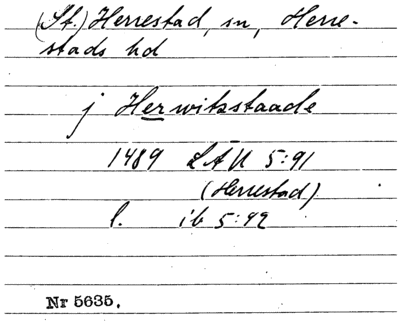 (St.) Herrestad, sn, Herre-
stads hd
j Herwitzstaade
1489 LÄU 5:91
(Herrestad)
l. ib 5:42
Nr 5635.